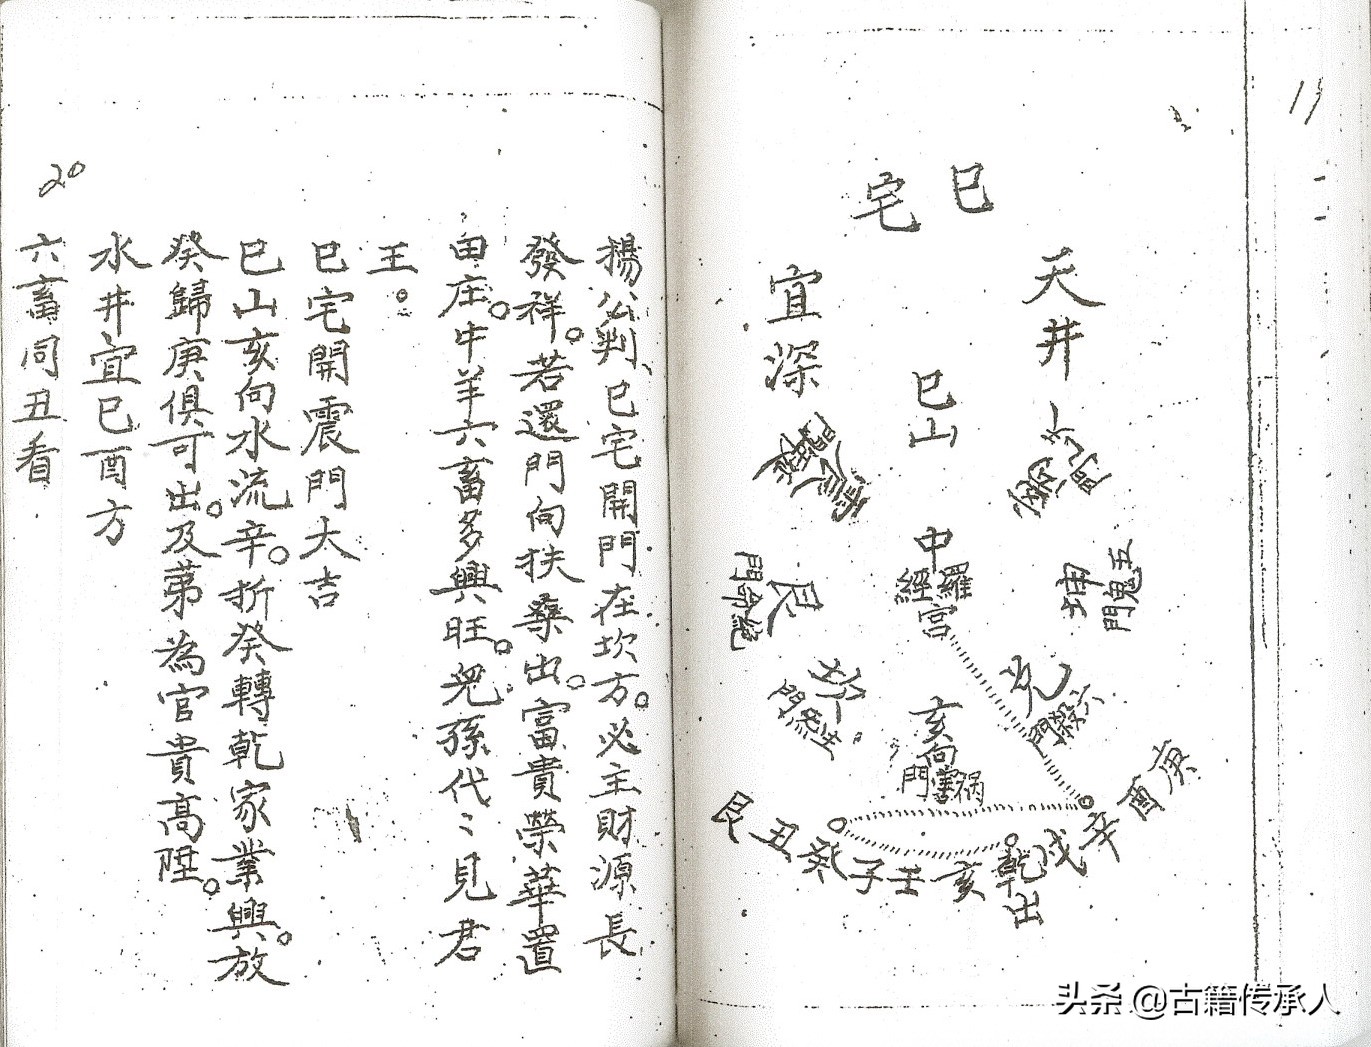 11
巳宅
天井
宜深
巳山
中
羅經
宮
亥向
禍害門
震
巽
坤
五鬼門
兌
六殺門
坎
生炁門
艮
絕命門
庚酉辛戌乾亥壬子癸丑艮
出
楊公判、巳宅開門在坎方。必主財源長
發祥。若還門向扶桑出。富貴榮華置
田庄。牛羊六畜多興旺。兒孫代〻見君
王。
巳宅開震門大吉
巳山亥向水流辛。折癸轉乾家業興。放
癸歸庚俱可出。及第為官貴高陞。
水井宜巳酉方
六畜同丑看
20
头条 @古籍传承人